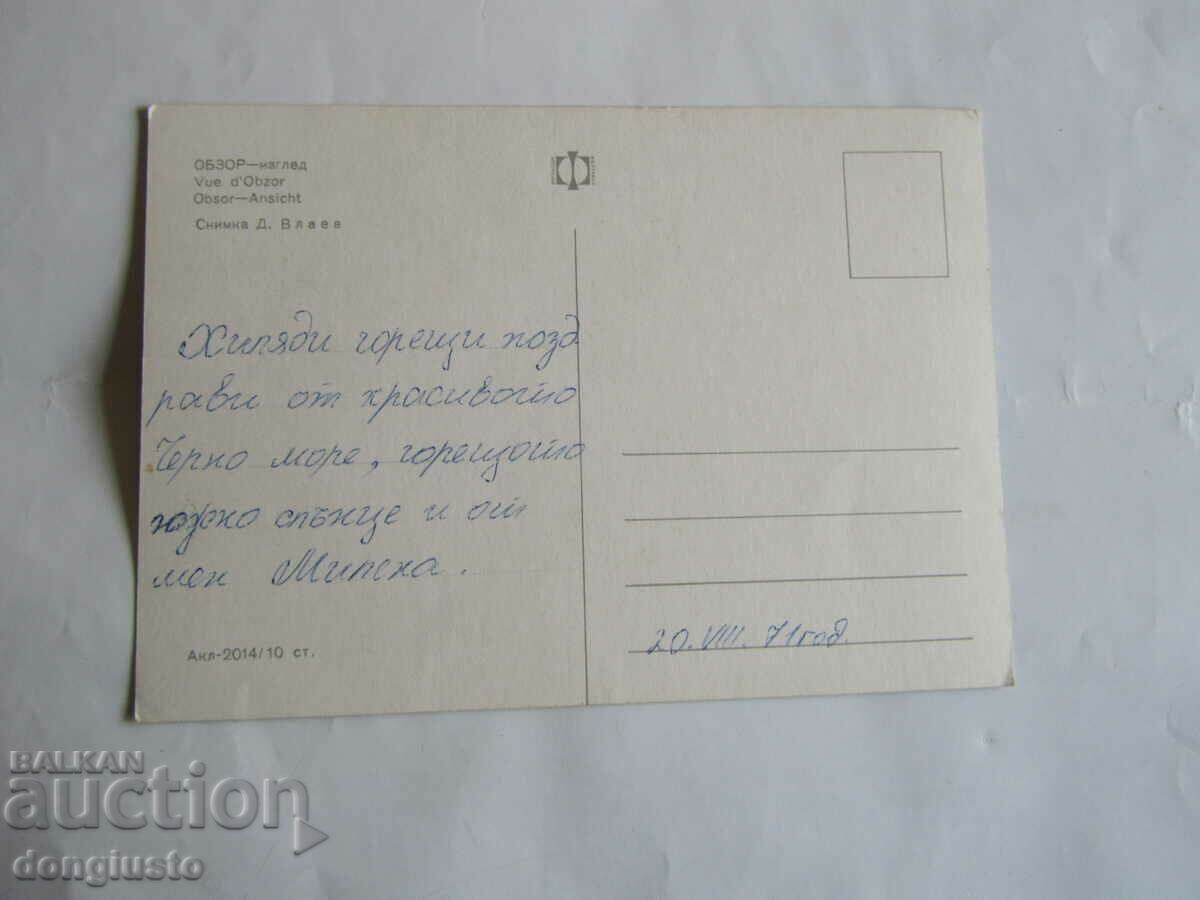 ОБЗОР—изглед
Vue d'Obzor
Obsor—Ansicht
Снимка Д. Влаев
Хиляди горещи позд
рави от красивото
Черно море, горещото
южно слънце и от
мен Милена.
Акл-2014/10 ст.
20.VIII.71 год.
BALKAN
auction
dongiusto